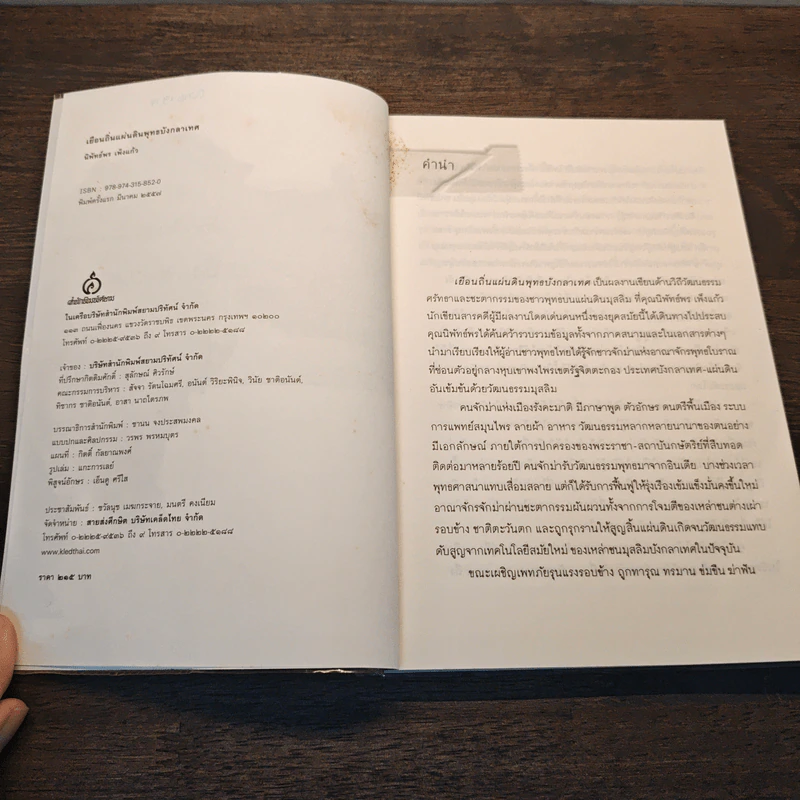 เยือนถิ่นแผ่นดินพุทธบังกลาเทศ
นิพัทธ์พร เพ็งแก้ว
ISBN : 978-974-315-852-0
พิมพ์ครั้งแรก มีนาคม ๒๕๕๗
ในเครือบริษัทสำนักพิมพ์สยามปริทัศน์ จำกัด
๑๑๓ ถนนเฟื่องนคร แขวงวัดราชบพิธ เขตพระนคร กรุงเทพฯ ๑๐๒๐๐
โทรศัพท์ ๐-๒๒๒๕-๙๕๓๖ ถึง ๙ โทรสาร ๐-๒๒๒๒-๕๑๘๘
เจ้าของ : บริษัทสำนักพิมพ์สยามปริทัศน์ จำกัด
ที่ปรึกษากิตติมศักดิ์ : สุลักษณ์ ศิวรักษ์
คณะกรรมการบริหาร : สัจจา รัตนโฉมศรี, อนันต์ วิริยะพินิจ, วินัย ชาติอนันต์,
ทิชากร ชาติอนันต์, อาสา นาถไตรภพ
บรรณาธิการสำนักพิมพ์ : ชานน จงประสพมงคล
แบบปกและศิลปกรรม : วรพร พรหมบุตร
แผนที่ : กิตติ์ กัลยาณพงศ์
รูปเล่ม : แกะการเลย์
พิสูจน์อักษร : เอ็นดู ศรีใส
ประชาสัมพันธ์ : ชวัลนุช เมฆกระจาย, มนตรี คงเนียม
จัดจำหน่าย : สายส่งศึกษิต บริษัทเคล็ดไทย จำกัด
โทรศัพท์ ๐-๒๒๒๕-๙๕๓๖ ถึง ๙ โทรสาร ๐-๒๒๒๒-๕๑๘๘
www.kledthai.com
ราคา ๒๑๕ บาท
คำนำ
เยือนถิ่นแผ่นดินพุทธบังกลาเทศ เป็นผลงานเขียนด้านวิถีวัฒนธรรม
ศรัทธาและชะตากรรมของชาวพุทธบนแผ่นดินมุสลิม ที่คุณนิพัทธ์พร เพ็งแก้ว
นักเขียนสารคดีผู้มีผลงานโดดเด่นคนหนึ่งของยุคสมัยนี้ได้เดินทางไปประสบ
คุณนิพัทธ์พรได้ค้นคว้ารวบรวมข้อมูลทั้งจากภาคสนามและในเอกสารต่างๆ
นำมาเรียบเรียงให้ผู้อ่านชาวพุทธไทยได้รู้จักชาวจักม่าแห่งอาณาจักรพุทธโบราณ
ที่ซ่อนตัวอยู่กลางหุบเขาพงไพรเขตรัฐจิตตะกอง ประเทศบังกลาเทศ-แผ่นดิน
อันเข้มข้นด้วยวัฒนธรรมมุสลิม
คนจักม่าแห่งเมืองรังคะมาติ มีภาษาพูด ตัวอักษร ดนตรีพื้นเมือง ระบบ
การแพทย์สมุนไพร ลายผ้า อาหาร วัฒนธรรมหลากหลายนานาของตนอย่าง
มีเอกลักษณ์ ภายใต้การปกครองของพระราชา-สถาบันกษัตริย์ที่สืบทอด
ติดต่อมาหลายร้อยปี คนจักม่ารับวัฒนธรรมพุทธมาจากอินเดีย บางช่วงเวลา
พุทธศาสนาแทบเสื่อมสลาย แต่ก็ได้รับการฟื้นฟูให้รุ่งเรืองเข้มแข็งมั่นคงขึ้นใหม่
อาณาจักรจักม่าผ่านชะตากรรมผันผวนทั้งจากการโจมตีของเหล่าชนต่างเผ่า
รอบข้าง ชาติตะวันตก และถูกรุกรานให้สูญสิ้นแผ่นดินเกิดจนวัฒนธรรมแทบ
ดับสูญจากเทคโนโลยีสมัยใหม่ ของเหล่าชนมุสลิมบังกลาเทศในปัจจุบัน
ขณะเผชิญเพทภัยรุนแรงรอบข้าง ถูกทารุณ ทรมาน ข่มขืน ฆ่าฟัน